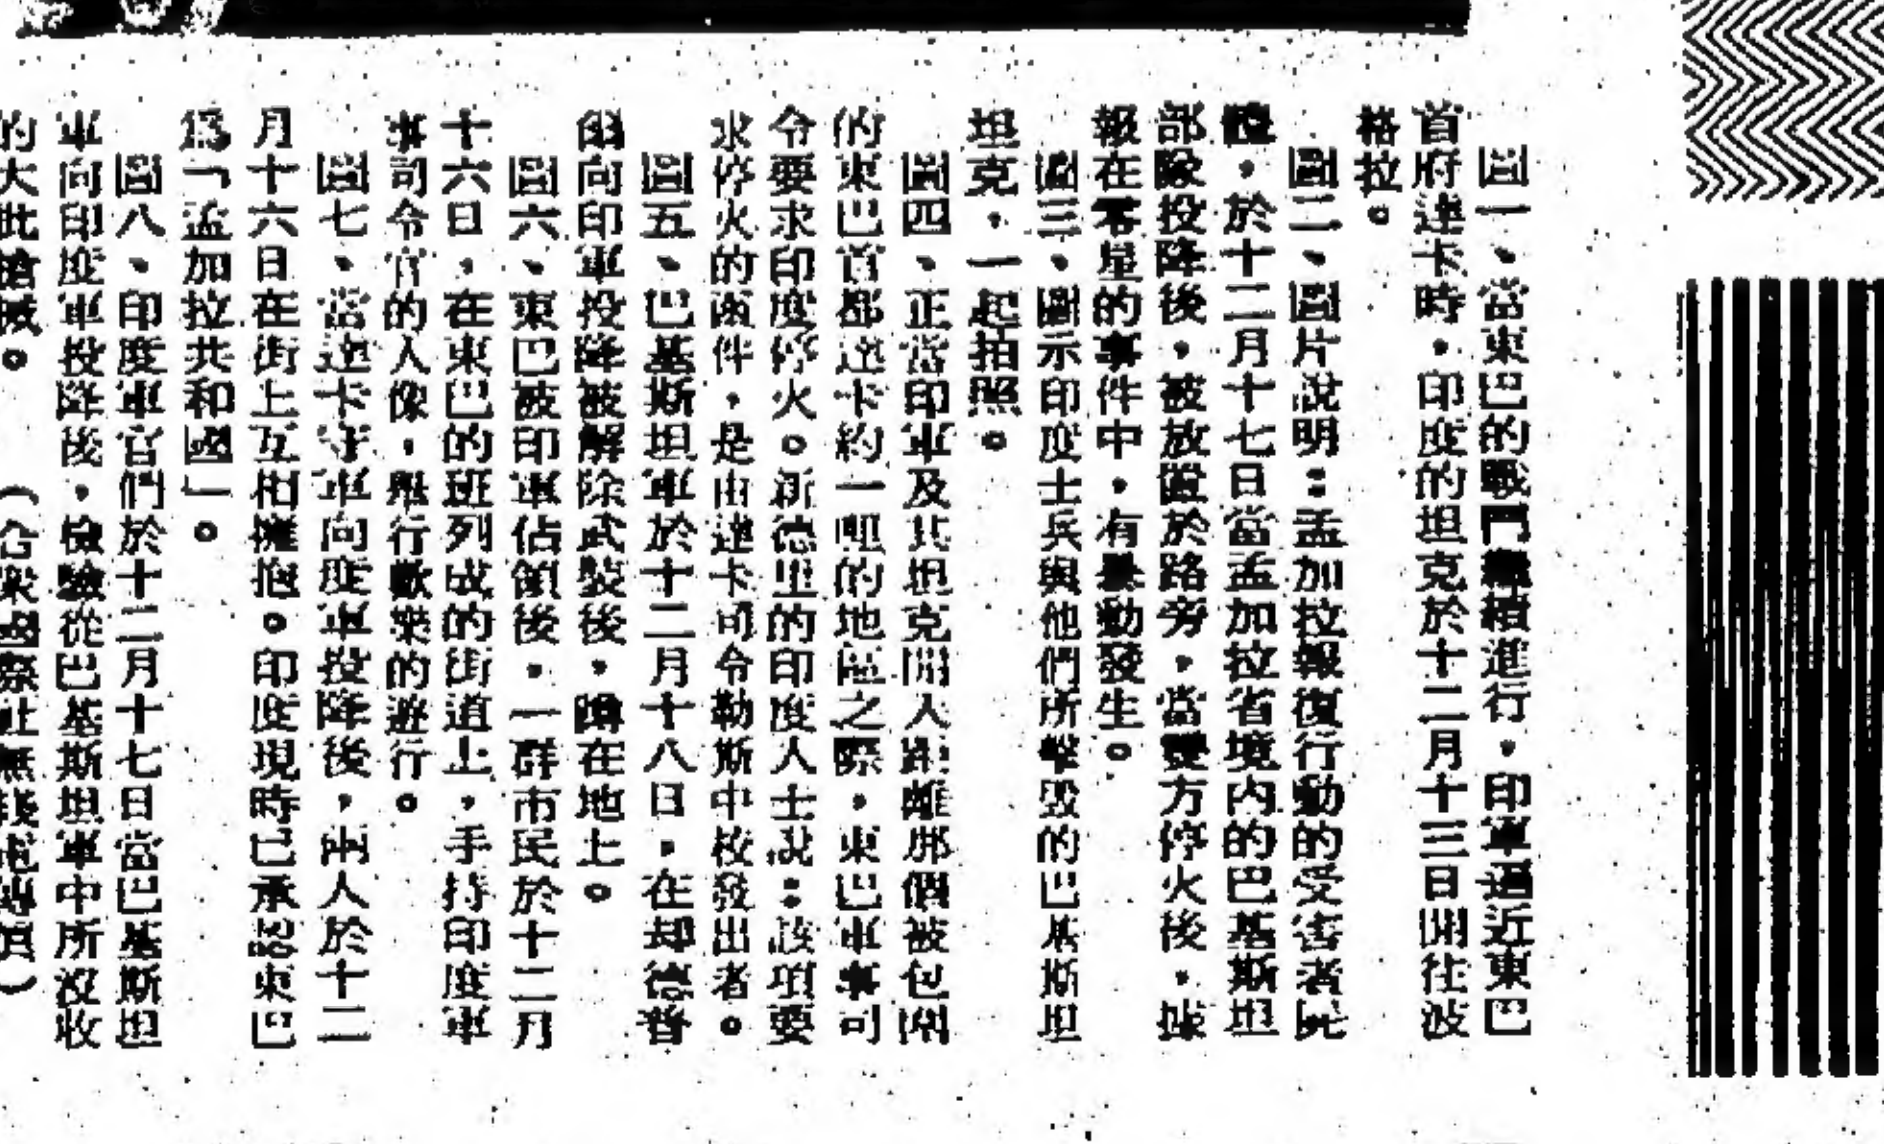 圖一、當東巴的戰鬥繼續進行，印軍逼近東巴
首府達卡時，印度的坦克於十二月十三日開往波
格拉。
圖二、圖片說明：孟加拉報復行動的受害者屍
體，於十二月十七日當孟加拉省境內的巴基斯坦
部隊投降後，被放置於路旁，當雙方停火後，據
報在零星的事件中，有暴動發生。
圖三、圖示印度士兵與他們所擊毀的巴基斯坦
坦克，一起拍照。
圖四、正當印軍及其坦克開入距離那個被包圍
的東巴首都達卡約一哩的地區之際，東巴軍事司
令要求印度停火。新德里的印度人士說：該項要
求停火的函件，是由達卡司令勒斯中校發出者。
圖五、巴基斯坦軍於十二月十八日，在却德普
爾向印軍投降被解除武裝後，蹲在地上。
圖六、東巴被印軍佔領後，一群市民於十二月
十六日，在東巴的班列成的街道上，手持印度軍
事司令官的人像，舉行歡樂的遊行。
圖七、當達卡守軍向度軍投降後，兩人於十二
月十六日在街上互相擁抱。印度現時已承認東巴
為「孟加拉共和國」。
圖八、印度軍官們於十二月十七日當巴基斯坦
軍向印度軍投降後，檢驗從巴基斯坦軍中所沒收
的大批槍械。（合眾國際社無綫電傳真）